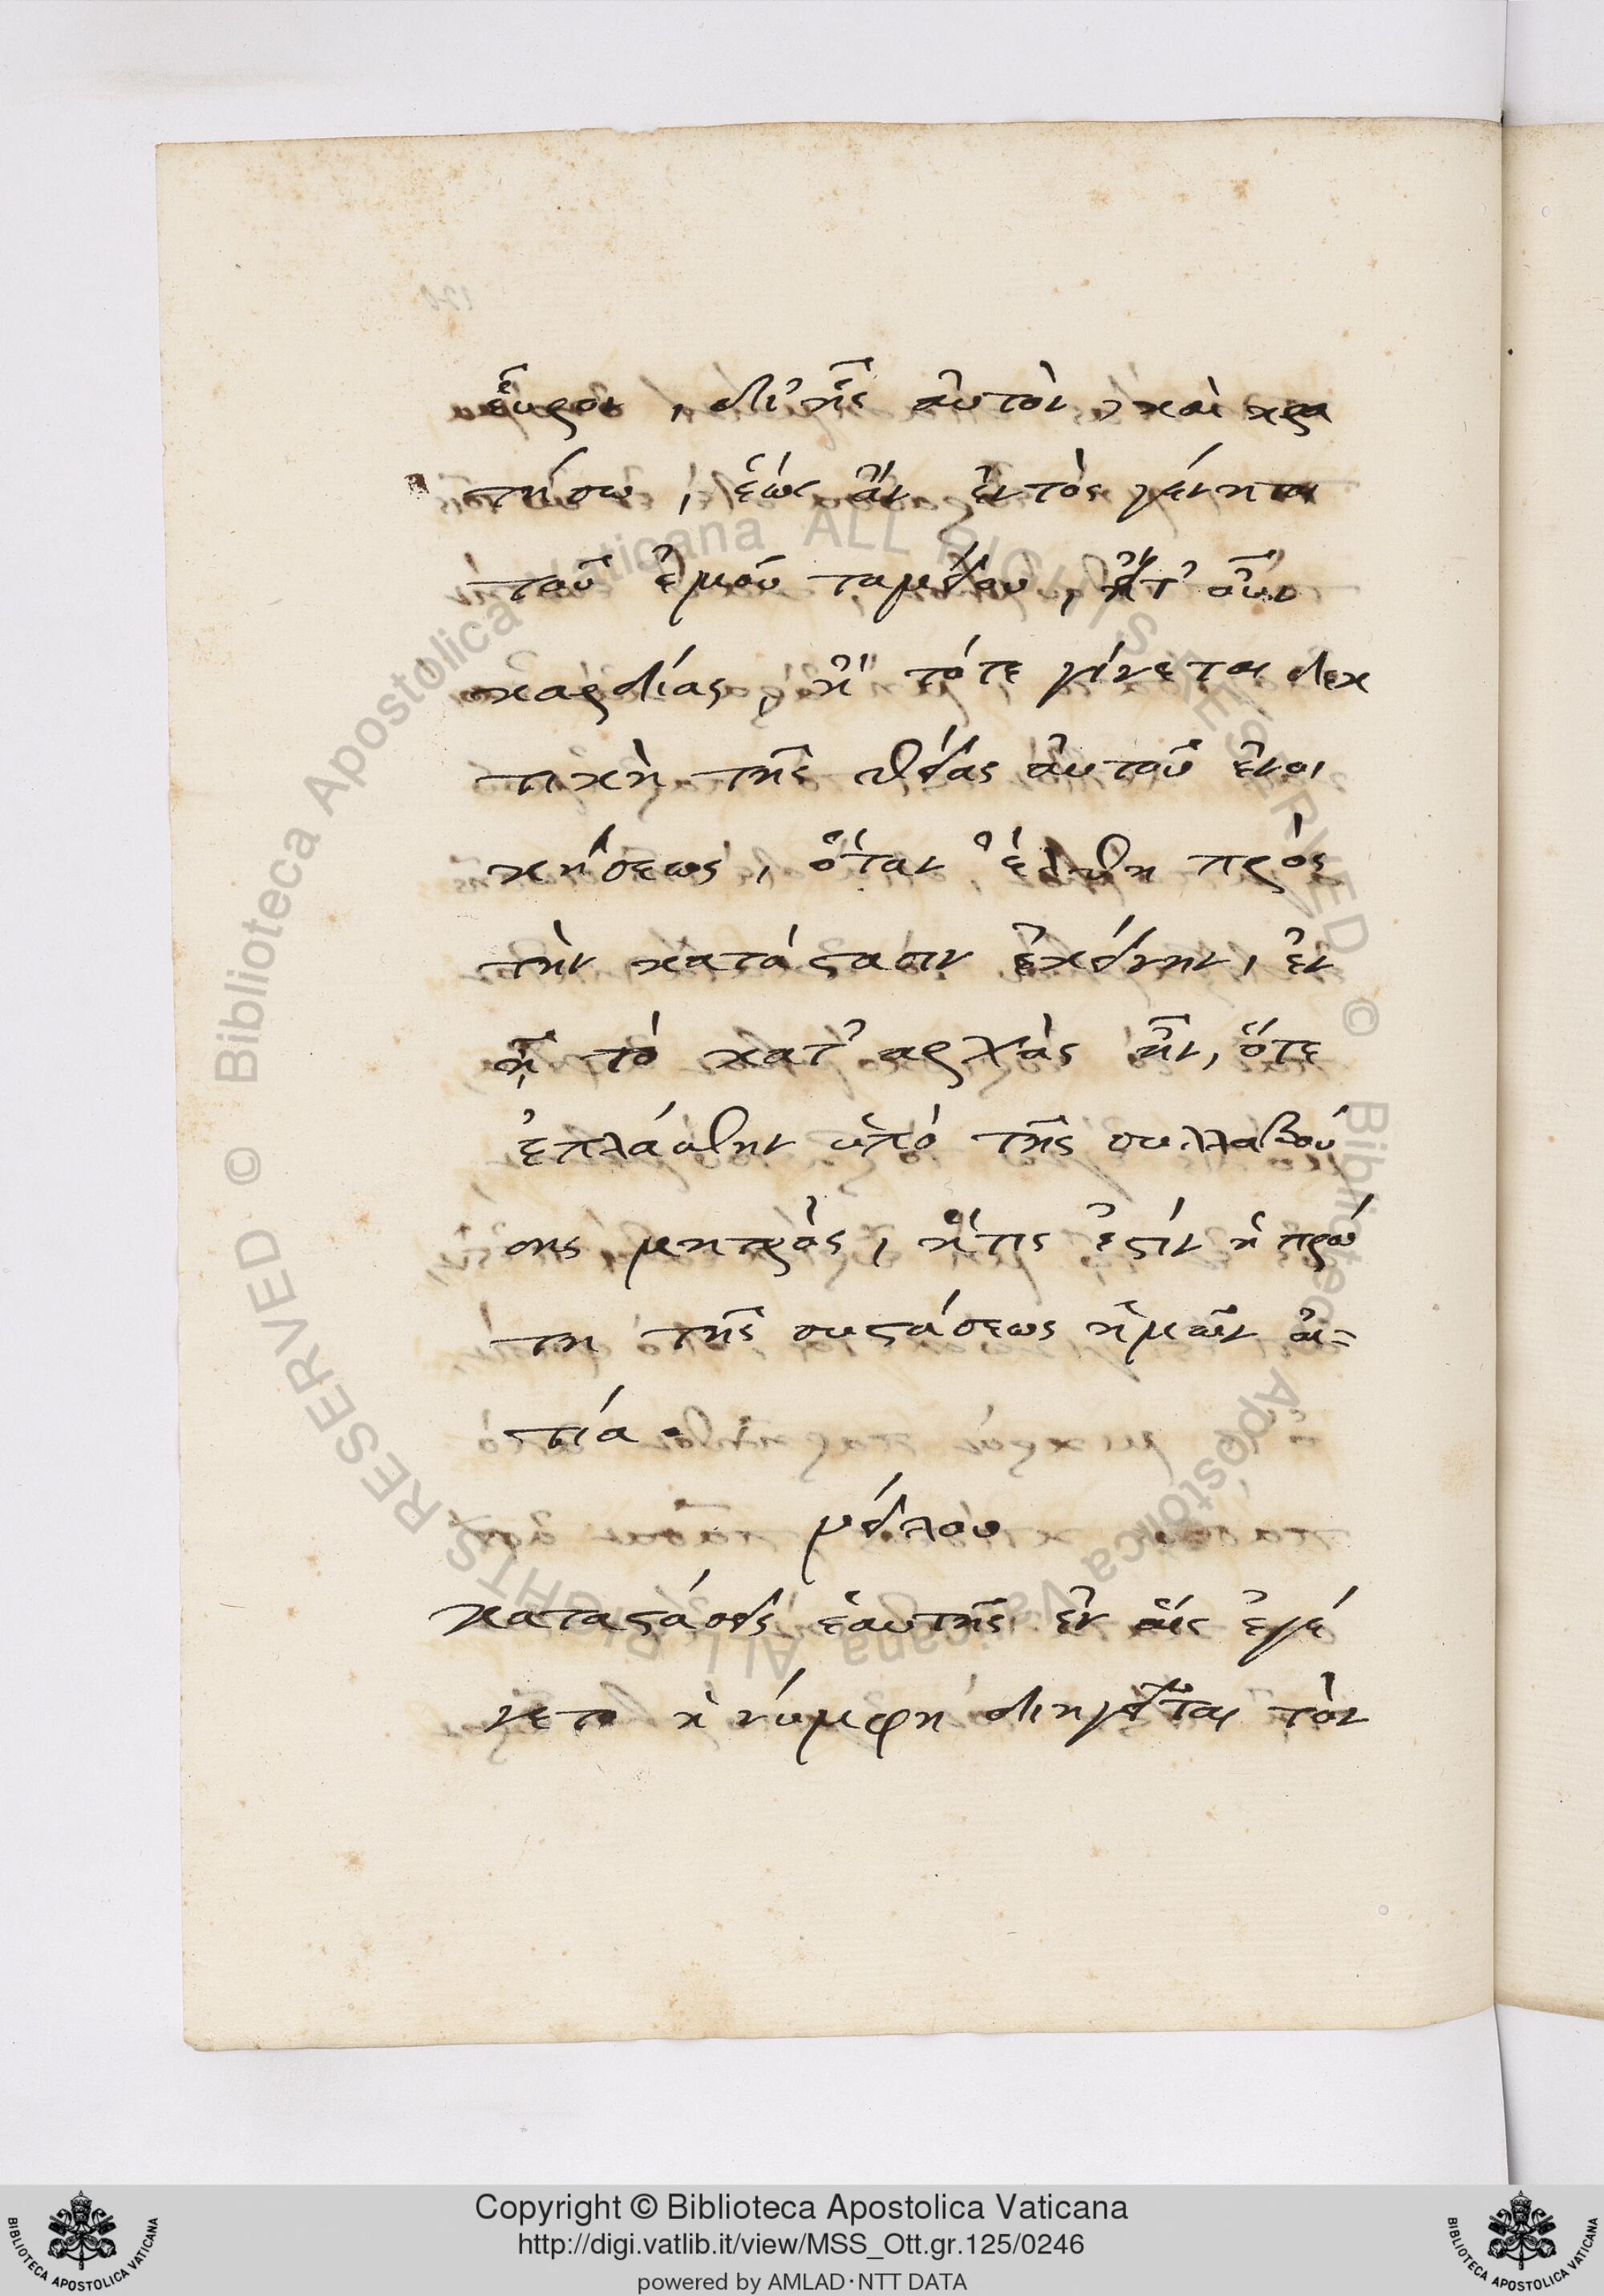 εὗρον, δι' ἧς αὐτὸν, καὶ κρα
τήσω, ἕως ἂν ἐντὸς γένηται
τοῦ ἐμοῦ ταμείου, ἤτ' οὖν
καρδίας, ἢ τότε γίνεται δεκ
τικὴ τῆς θείας αὐτοῦ ἐνοι
κήσεως, ὅταν ἐέλθη πρὸς
τὴν κατάστασιν ἐκείνην, ἐν
ᾗ τὸ κατ' αρχὰς ἦν, ὅτε
ἐπλάσθην ὑπὸ τῆς συλλαβού
σης μητρὸς, ἥτις ἐστὶν ἡ πρώ
τη τῆς συστάσεως ἡμῶν αἰ=
τία.
ψέλλου
καταστάσεις ἑαυτῆς ἐν αἷς ἐγέ
νετο ἡ νύμφη διηγεῖται τὸν
Copyright © Biblioteca Apostolica Vaticana
http://digi.vatlib.it/view/MSS_Ott.gr.125/0246
powered by AMLAD·NTT DATA
BIBLIOTECA APOSTOLICA VATICANA
BIBLIOTECA APOSTOLICA VATICANA
© Biblioteca Apostolica Vaticana ALL RIGHTS RESERVED © Biblioteca Apostolica Vaticana ALL RIGHTS RESERVED